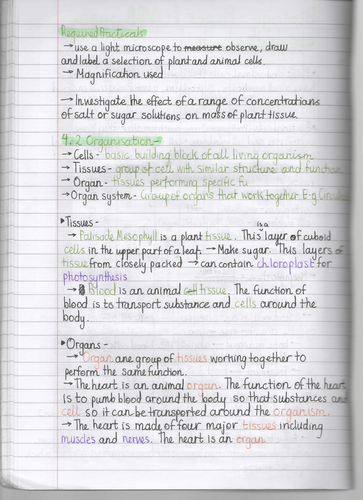 Required Practicals
→ use a light microscope to measure observe, draw
and label a selection of plant and animal cells.
→ Magnification used
→ Investigate the effect of a range of concentrations
of salt or sugar solutions on mass of plant tissue.
4.2 Organisation-
→ Cells - basic building block of all living organism
→ Tissues - group of cell with similar structure and function
→ Organ - tissues performing specific fu
→ Organ system - Group of organs that work together E.g Circula
• Tissues -
→ Palisade Mesophyll is a plant tissue. This is a layer of cuboid
cells in the upper part of a leaf. → Make sugar. This layers of
tissue from closely packed → can contain chloroplast for
photosynthesis
→ Blood is an animal cell tissue. The function of
blood is to transport substance and cells around the
body.
• Organs -
→ Organ are group of tissues working together to
perform the same function.
→ The heart is an animal organ. The function of the heart
is to pump blood around the body so that substances and
cell so it can be transported around the organism.
→ The heart is made of four major tissues including
muscles and nerves. The heart is an organ.